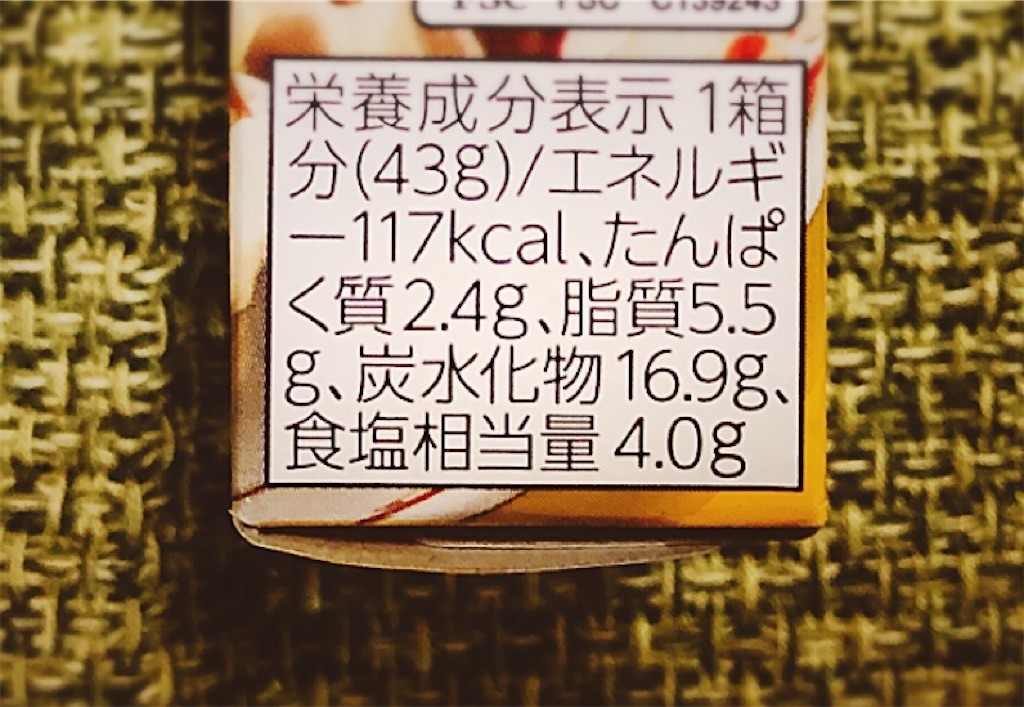 FSC C139243
栄養成分表示 1箱
分(43g)/エネルギ
ー117kcal、たんぱ
く質2.4g、脂質5.5
g、炭水化物16.9g、
食塩相当量 4.0g